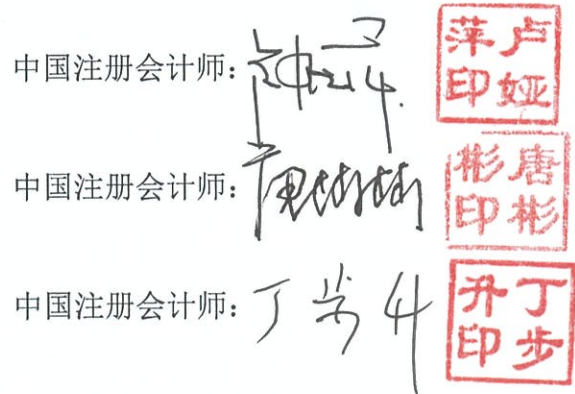 中国注册会计师：
卢娅萍印
中国注册会计师：唐彬彬
唐彬彬印
中国注册会计师：丁步升
丁步升印